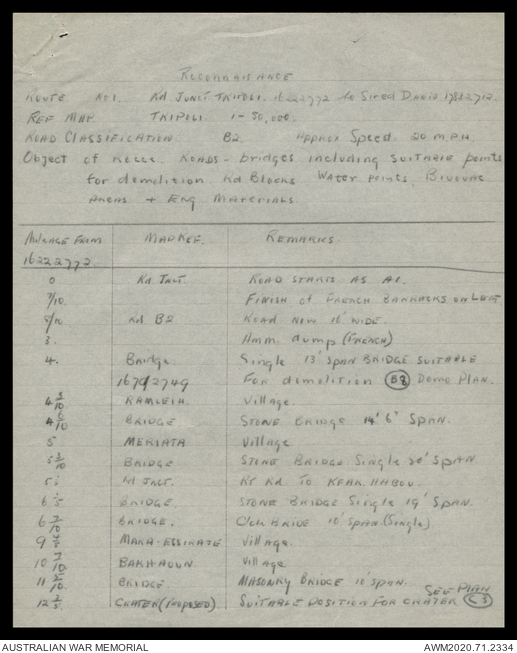 RECONNAISANCE
ROUTE No1. Rd JUNCT TRIPOLI. 16222772 to SIRED DANIE 17812712.
REF MAP. TRIPOLI 1-50,000.
ROAD CLASSIFICATION. B2. APPROX SPEED. 20 M.P.H.
Object of Recce. ROADS - bridges including suitable points
for demolition. Rd Blocks Water points, Bivouac
Areas + Eng Materials.
MILEAGE FROM MAP REF. REMARKS.
16222772.
0 Rd Jnct. ROAD STARTS AS A1.
7/10 FINISH of FRENCH BARRACKS ON LEFT
Rd B2 ROAD NOW 16' WIDE.
3. Amm. dump (FRENCH)
4. Bridge. Single 13' SPAN BRIDGE SUITABLE
16712749 For demolition B2 Demo PLAN.
4 RAMLEIH. Village
4 6/10 BRIDGE STONE BRIDGE 14' 6" SPAN.
5 MERIATA Village
5 3/10 BRIDGE STONE BRIDGE Single 20' SPAN
5 Rd Jnct. RT Rd TO KFAR. HABOU.
6 1/5 BRIDGE. STONE BRIDGE Single 19' SPAN.
6 7/10 BRIDGE. Single 10' SPAN. (Single)
9 MARA-ESSIKATE Village.
10 7/10 BARHAOUN. Village
11 BRIDGE MASONRY BRIDGE 10' SPAN.
12 2/5. CRATER (PROPOSED) SUITABLE POSITION FOR CRATER SEE PLAN C3
AUSTRALIAN WAR MEMORIAL AWM2020.71.2334